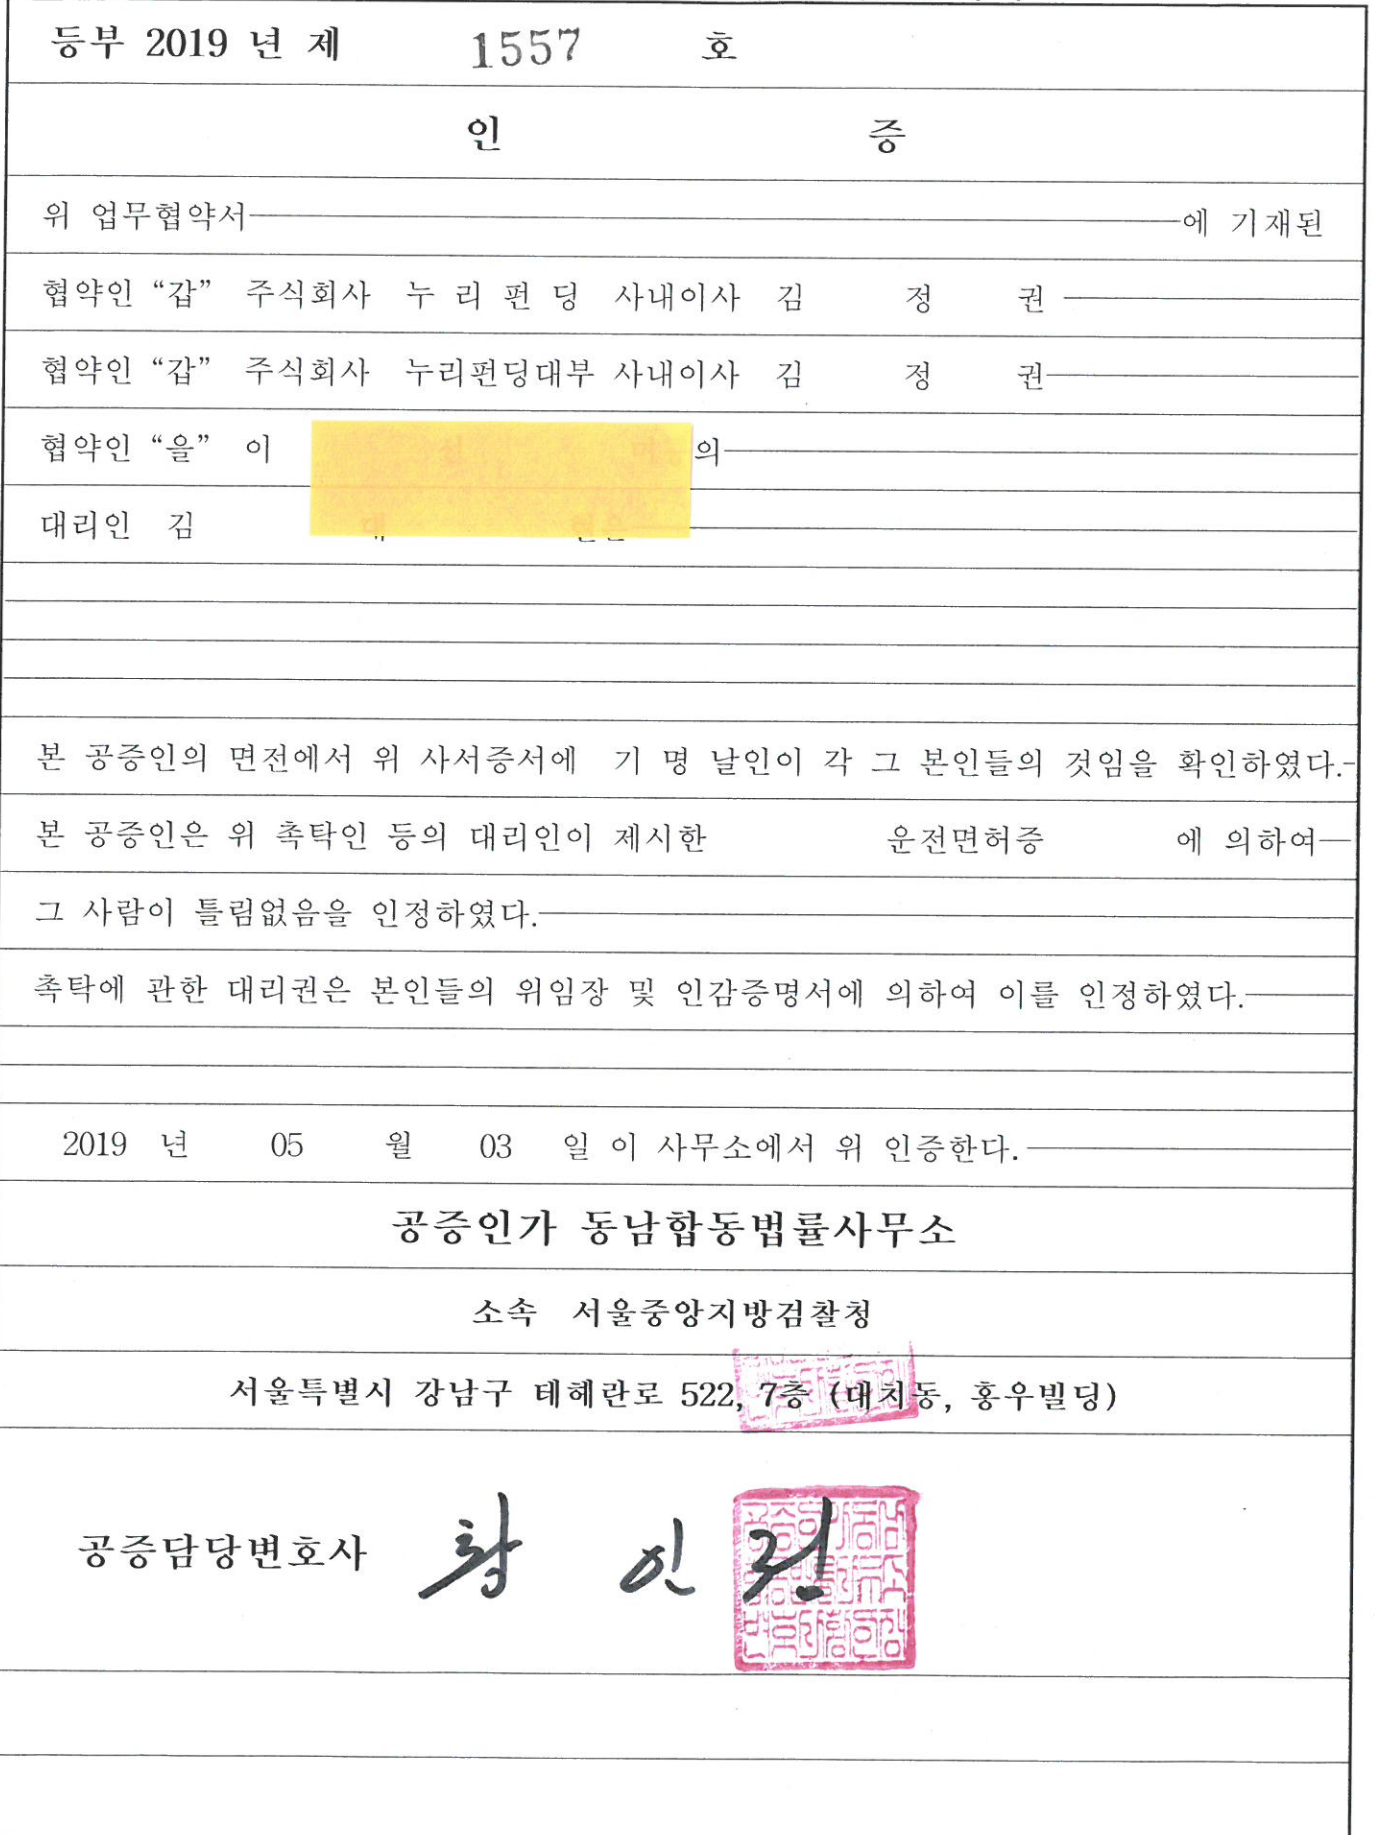 등부 2019 년 제 1557 호
인 증
위 업무협약서 에 기재된
협약인 “갑” 주식회사 누 리 펀 딩 사내이사 김 정 권
협약인 “갑” 주식회사 누리펀딩대부 사내이사 김 정 권
협약인 “을” 이 의
대리인 김
본 공증인의 면전에서 위 사서증서에 기 명 날인이 각 그 본인들의 것임을 확인하였다.
본 공증인은 위 촉탁인 등의 대리인이 제시한 운전면허증 에 의하여
그 사람이 틀림없음을 인정하였다.
촉탁에 관한 대리권은 본인들의 위임장 및 인감증명서에 의하여 이를 인정하였다.
2019 년 05 월 03 일 이 사무소에서 위 인증한다.
공증인가 동남합동법률사무소
소속 서울중앙지방검찰청
서울특별시 강남구 테헤란로 522, 7층 (대치동, 홍우빌딩)
공증담당변호사 황 인